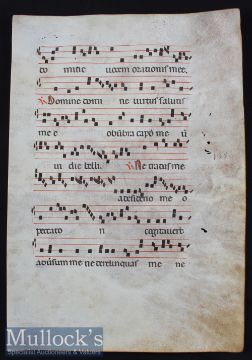 o mitie vocem orationis mee.
Domine domi ne virtus salutis
me e obūbra capō me ū
in die belli. Ne tradas me
a desiderio me o
peccato ri cogitaverūt
adūsum me ne derelinquas me ne
Mullock's
Specialist Auctioneers & Valuers